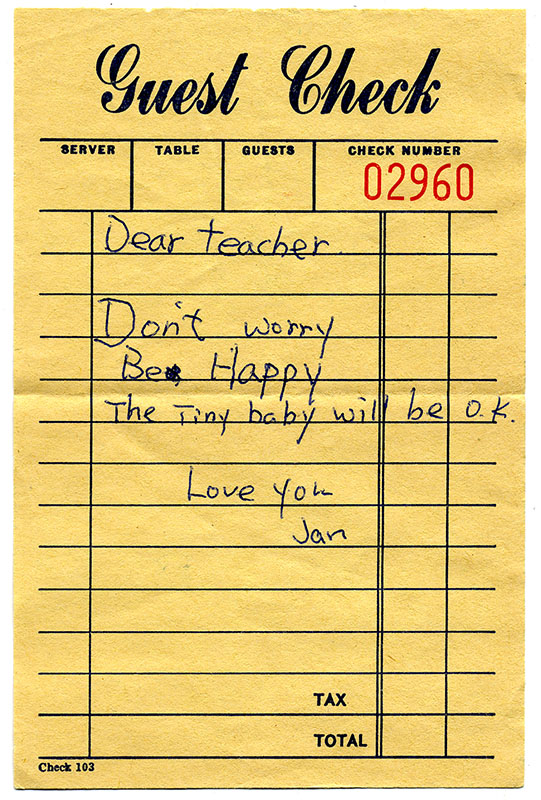 Guest Check
SERVER TABLE GUESTS CHECK NUMBER
02960
Dear teacher
Don't worry
Be Happy
The Tiny baby will be O.K.
Love you
Jan
TAX
TOTAL
Check 103